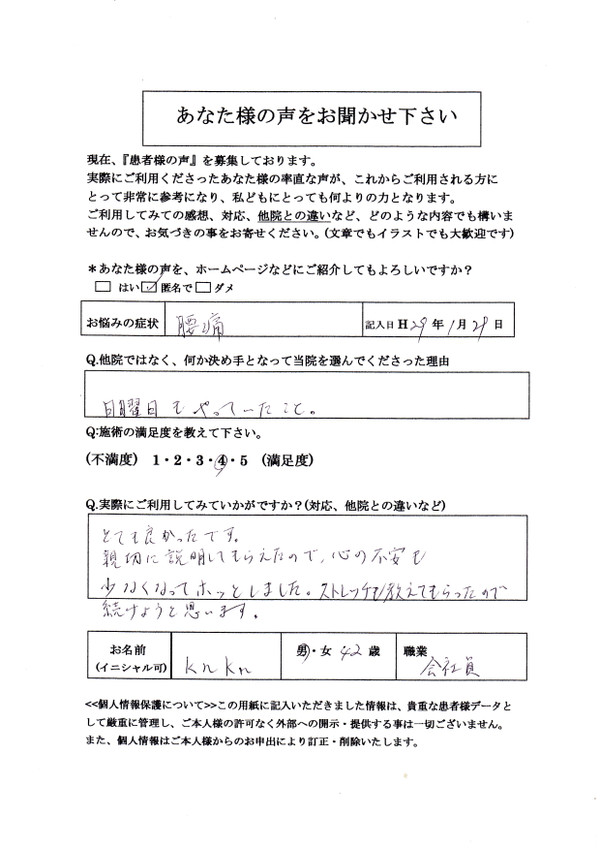 あなた様の声をお聞かせ下さい
現在、『患者様の声』を募集しております。
実際にご利用くださったあなた様の率直な声が、これからご利用される方に
とって非常に参考になり、私どもにとっても何よりの力となります。
ご利用してみての感想、対応、他院との違いなど、どのような内容でも構いま
せんので、お気づきの事をお寄せください。(文章でもイラストでも大歓迎です)
＊あなた様の声を、ホームページなどにご紹介してもよろしいですか？
□ はい ☑ 匿名で □ ダメ
お悩みの症状 腰痛 記入日 H 29 年 1 月 29 日
Q.他院ではなく、何か決め手となって当院を選んでくださった理由
日曜日もやっていたこと。
Q:施術の満足度を教えて下さい。
(不満度) 1・2・3・4・5 (満足度)
Q.実際にご利用してみていかがですか？(対応、他院との違いなど)
とても良かったです。
親切に説明してもらえたので、心の不安も
少なくなってホッとしました。ストレッチも教えてもらったので
続けようと思います。
お名前 (イニシャル可) kn kn 男・女 42 歳 職業 会社員
<<個人情報保護について>>この用紙に記入いただきました情報は、貴重な患者様データと
して厳重に管理し、ご本人様の許可なく外部への開示・提供する事は一切ございません。
また、個人情報はご本人様からのお申出により訂正・削除いたします。